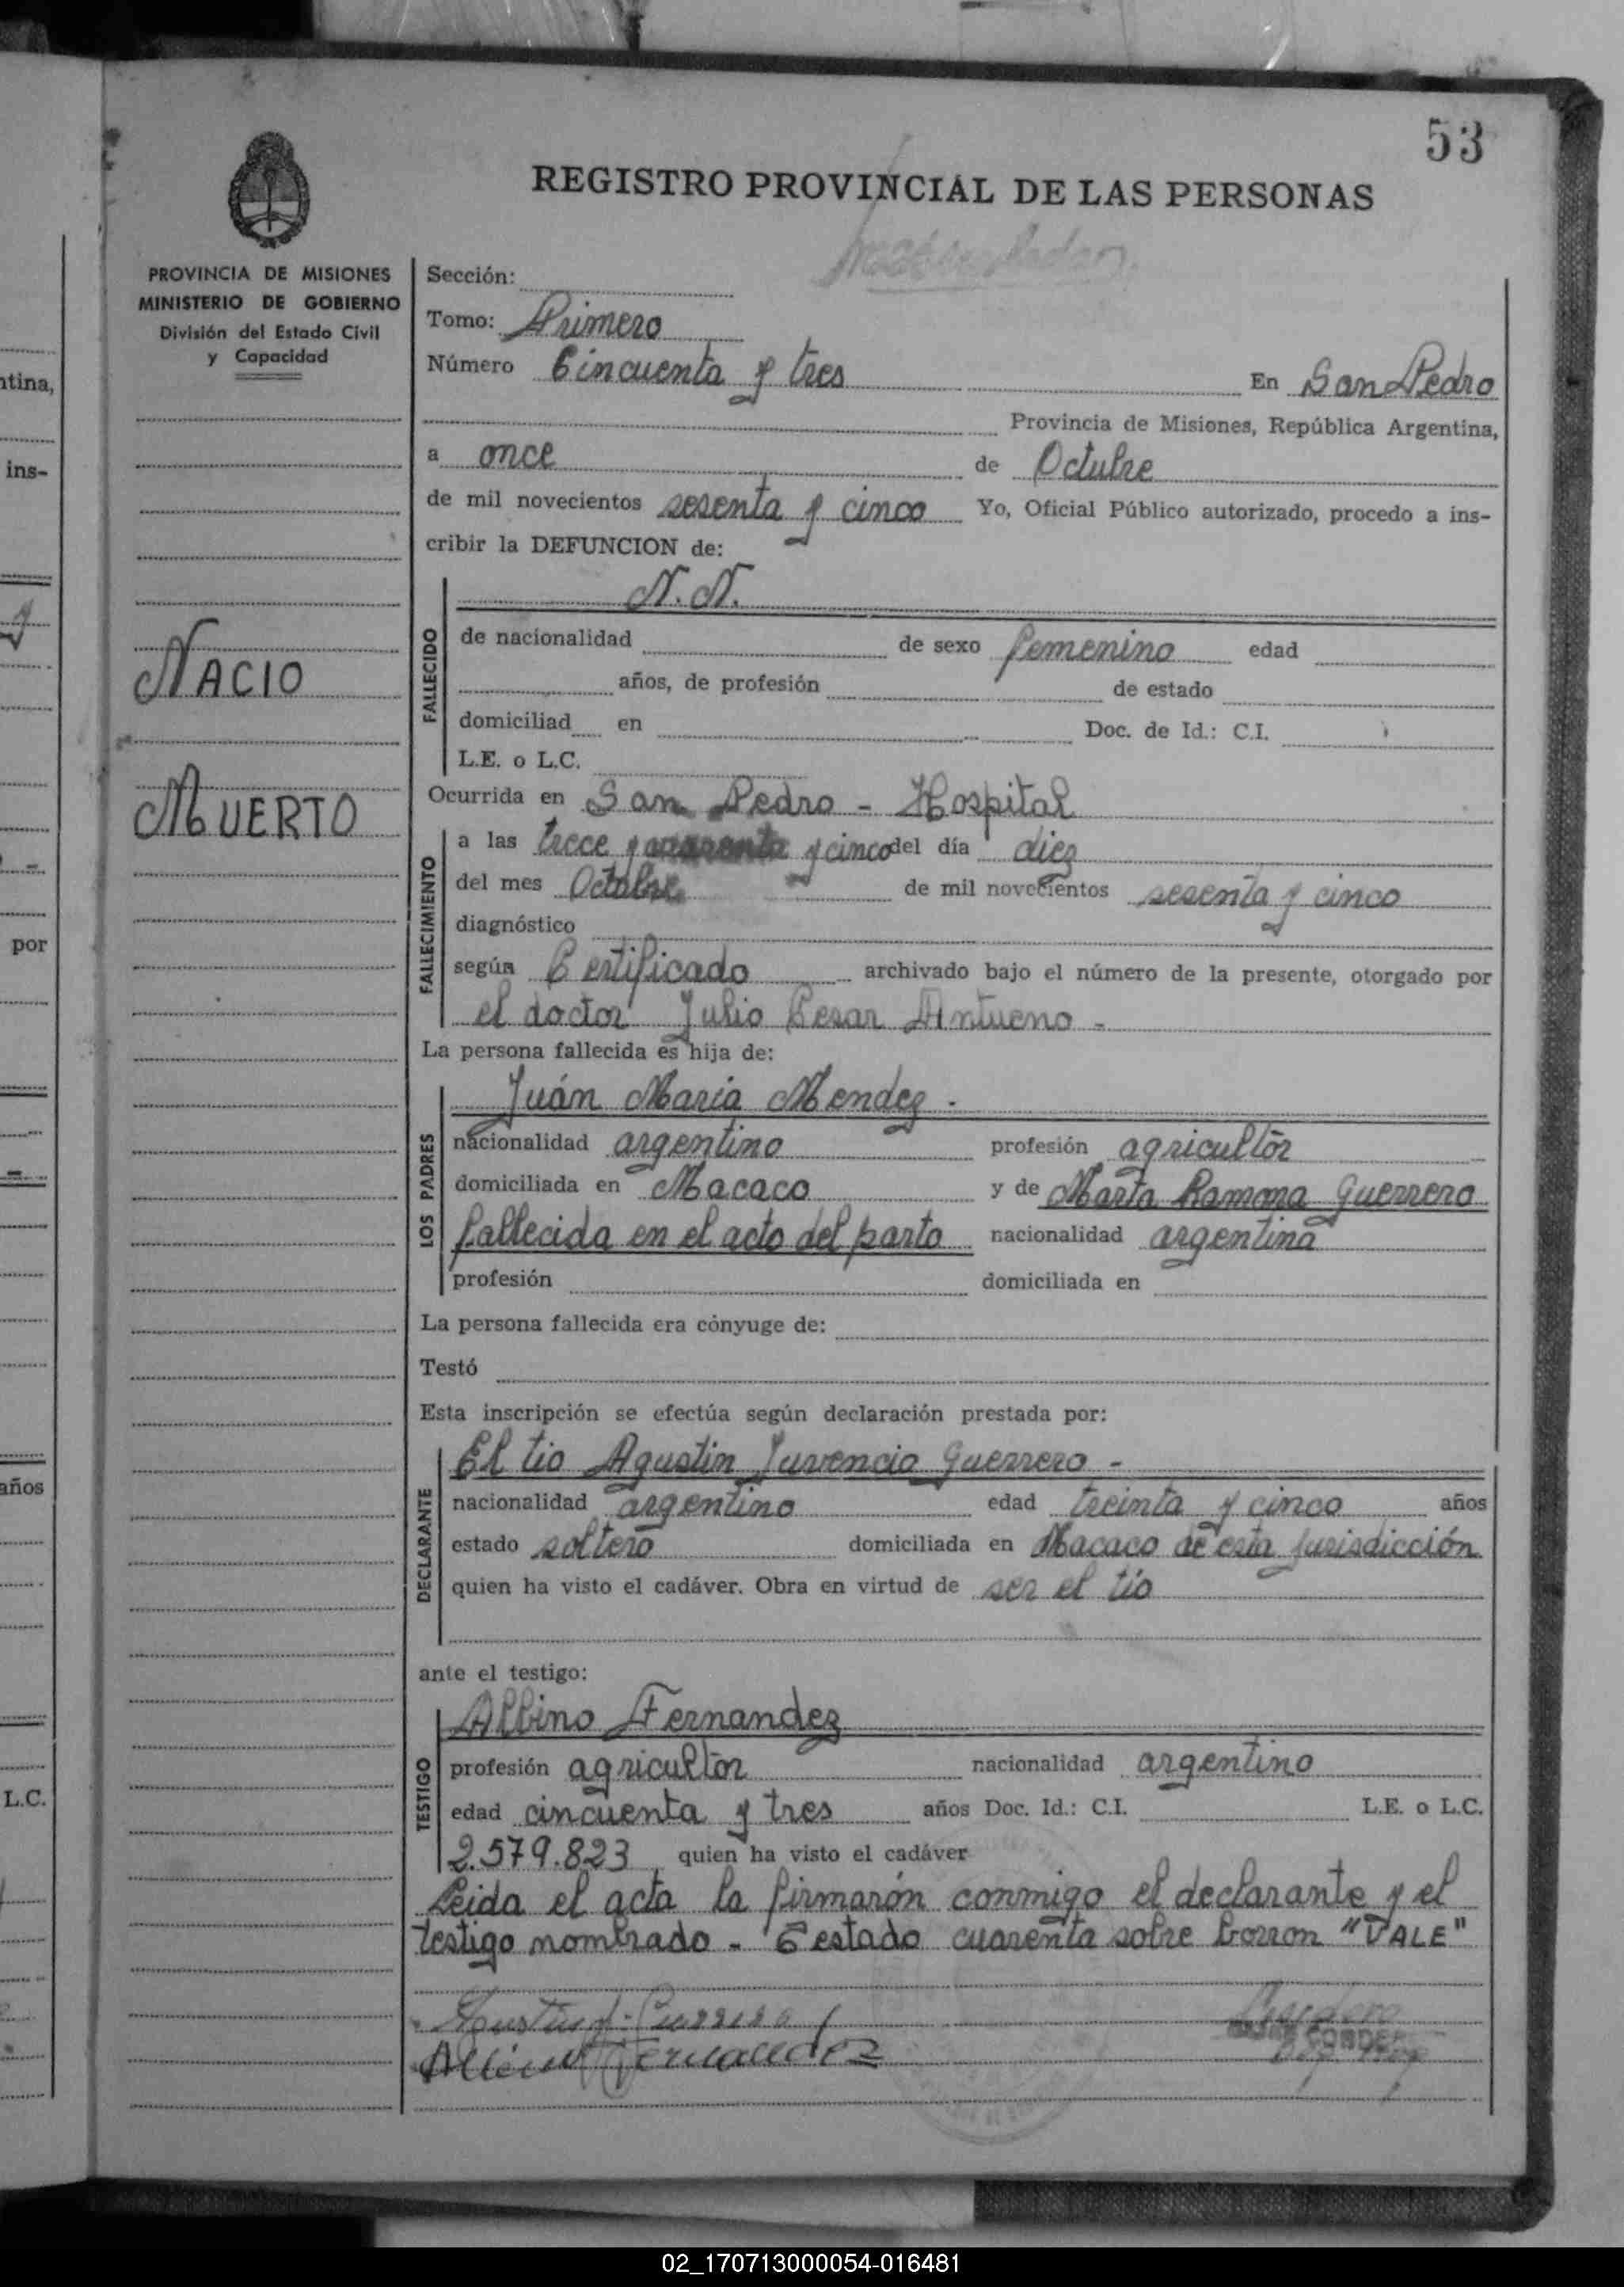 53
REGISTRO PROVINCIAL DE LAS PERSONAS
PROVINCIA DE MISIONES
MINISTERIO DE GOBIERNO
División del Estado Civil
y Capacidad
NACIO
MUERTO
Sección:
Tomo: Primero
Número Cincuenta y tres En San Pedro
Provincia de Misiones, República Argentina,
a once de Octubre
de mil novecientos sesenta y cinco Yo, Oficial Público autorizado, procedo a ins-
cribir la DEFUNCION de:
FALLECIDO
N. N.
de nacionalidad de sexo femenino edad
años, de profesión de estado
domiciliad en Doc. de Id.: C.I.
L.E. o L.C.
Ocurrida en San Pedro - Hospital
FALLECIMIENTO
a las trece y cuarenta y cinco del día diez
del mes Octubre de mil novecientos sesenta y cinco
diagnóstico
según Certificado archivado bajo el número de la presente, otorgado por
el doctor Julio Cesar Antueno -
La persona fallecida es hija de:
LOS PADRES
Juán Maria Mendez -
nacionalidad argentino profesión agricultor
domiciliada en Macaco y de Marta Ramona Guerrero
fallecida en el acto del parto nacionalidad argentina
profesión domiciliada en
La persona fallecida era cónyuge de:
Testó
Esta inscripción se efectúa según declaración prestada por:
DECLARANTE
El tio Agustin Juvencio Guerrero -
nacionalidad argentino edad treinta y cinco años
estado soltero domiciliada en Macaco de esta jurisdicción
quien ha visto el cadáver. Obra en virtud de ser el tío
ante el testigo:
TESTIGO
Albino Fernandez
profesión agricultor nacionalidad argentino
edad cincuenta y tres años Doc. Id.: C.I. L.E. o L.C.
2.579.823 quien ha visto el cadáver
Leida el acta la firmarón conmigo el declarante y el
testigo nombrado - Testado cuarenta sobre borron "VALE"
Agustin J. Guerrero
Albino Fernandez
ntina,
ins-
por
años
L.C.
02_170713000054-016481